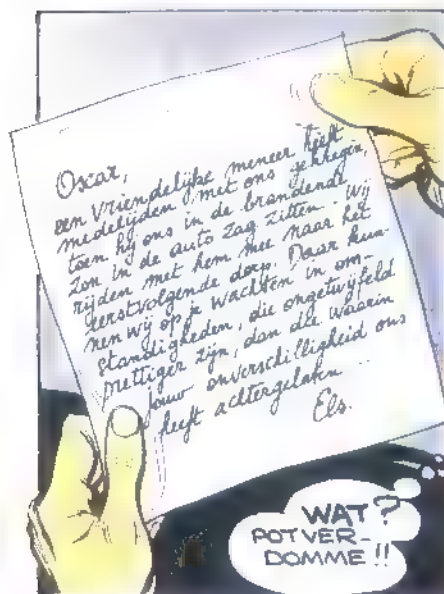 Oscar,
een vriendelijke meneer heeft
medelijden met ons gekregen,
toen hij ons in de brandende
zon in de auto zag zitten. Wij
rijden met hem mee naar het
eerstvolgende dorp. Daar kun-
nen wij op je wachten in om-
standigheden, die ongetwijfeld
prettiger zijn, dan die waarin
jouw onverschilligheid ons
heeft achtergelaten...
Els.
WAT?
POTVER-
DOMME!!